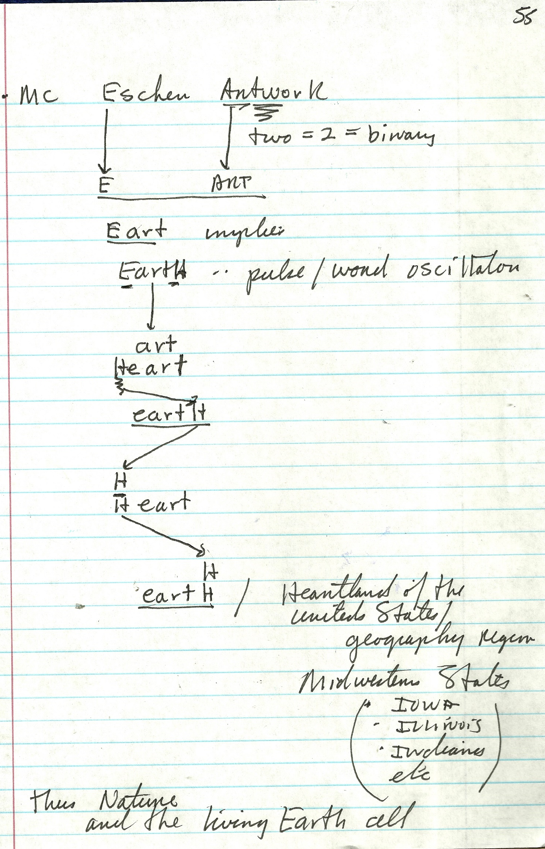 55
· Mc Eschen Antwork
two = 2 = binary
E ART
Eart implies
EartH .. pulse / word oscillator
art
Heart
eartH
H
Heart
H
eartH / Heartland of the
United States/
geography region
Midwestern States
· IOWA
- ILLinois
· Indiana
etc
thus Nature
and the living Earth cell